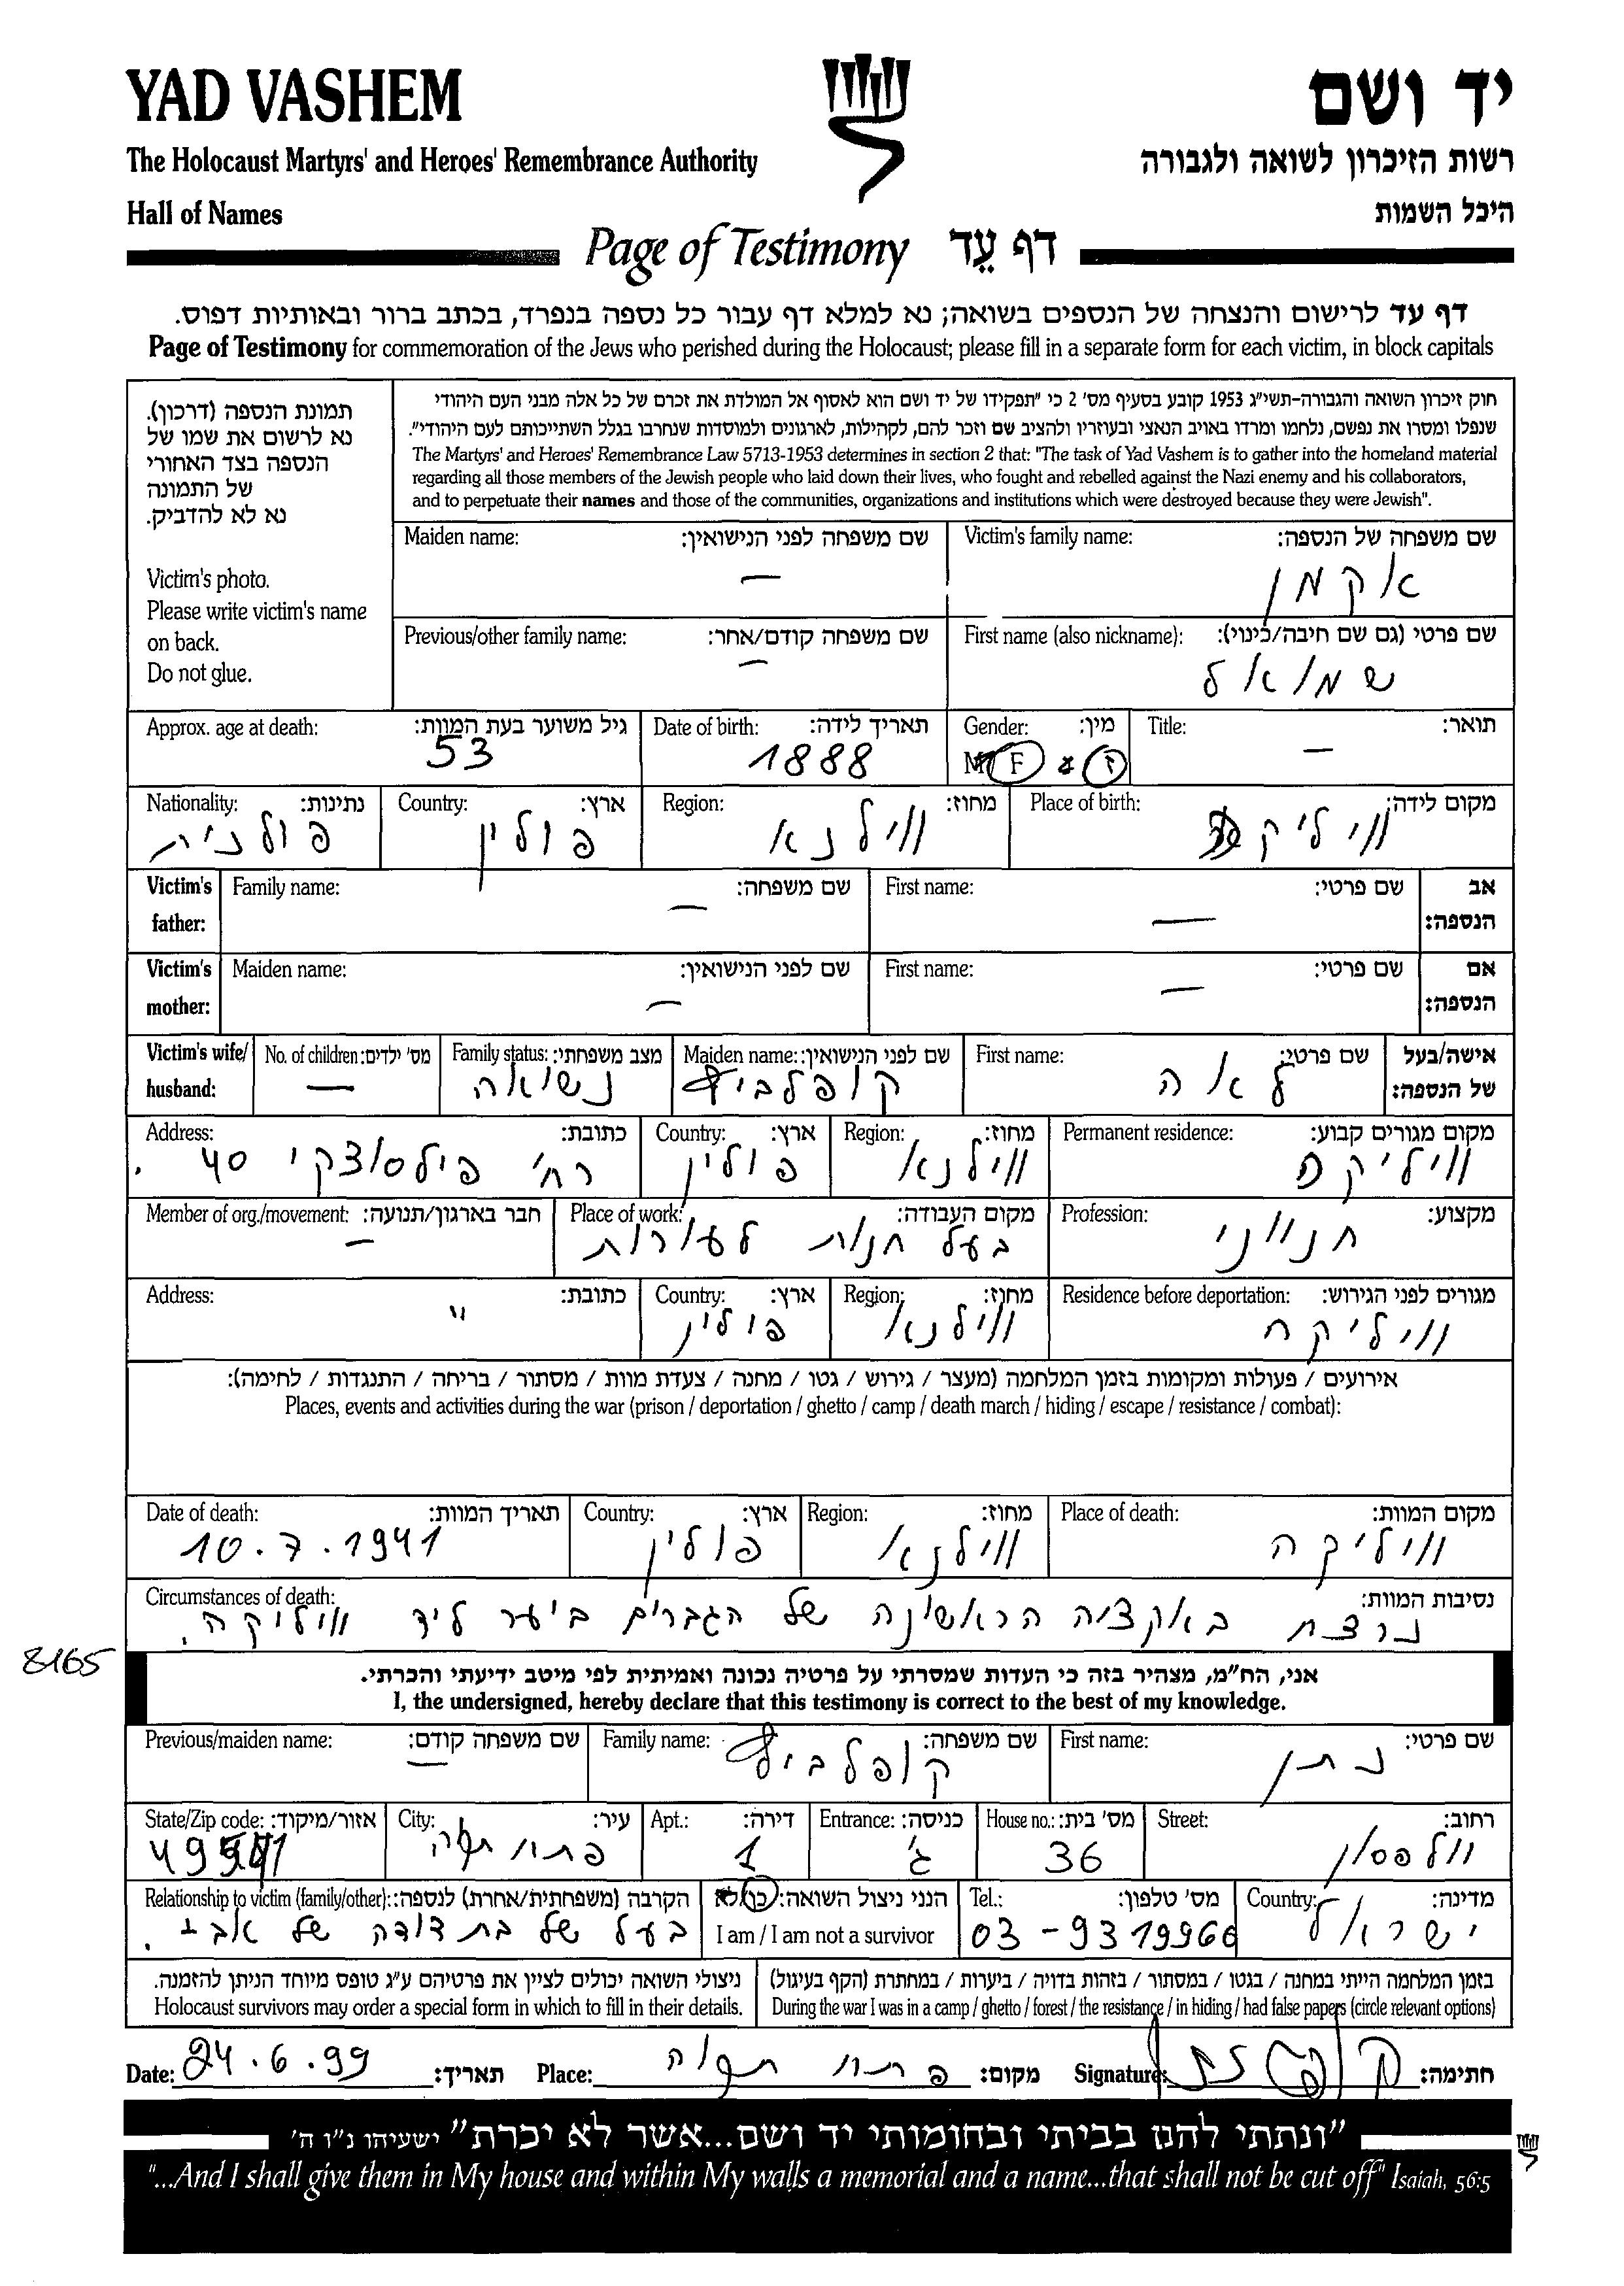 YAD VASHEM
יד ושם
The Holocaust Martyrs' and Heroes' Remembrance Authority
רשות הזיכרון לשואה ולגבורה
Hall of Names
היכל השמות
Page of Testimony דף עֵד
דף עד לרישום והנצחה של הנספים בשואה; נא למלא דף עבור כל נספה בנפרד, בכתב ברור ובאותיות דפוס.
Page of Testimony for commemoration of the Jews who perished during the Holocaust; please fill in a separate form for each victim, in block capitals
תמונת הנספה (דרכון).
נא לרשום את שמו של
הנספה בצד האחורי
של התמונה
נא לא להדביק.
Victim's photo.
Please write victim's name
on back.
Do not glue.
חוק זיכרון השואה והגבורה-תשי"ג 1953 קובע בסעיף מס' 2 כי "תפקידו של יד ושם הוא לאסוף אל המולדת את זכרם של כל אלה מבני העם היהודי
שנפלו ומסרו את נפשם, נלחמו ומרדו באויב הנאצי ובעוזריו ולהציב שם וזכר להם, לקהילות, לארגונים ולמוסדות שנחרבו בגלל השתייכותם לעם היהודי".
The Martyrs' and Heroes' Remembrance Law 5713-1953 determines in section 2 that: "The task of Yad Vashem is to gather into the homeland material
regarding all those members of the Jewish people who laid down their lives, who fought and rebelled against the Nazi enemy and his collaborators,
and to perpetuate their names and those of the communities, organizations and institutions which were destroyed because they were Jewish".
Maiden name: שם משפחה לפני הנישואין: Victim's family name: שם משפחה של הנספה:
— אקמן
Previous/other family name: שם משפחה קודם/אחר: First name (also nickname): שם פרטי (גם שם חיבה/כינוי):
— שמואל
Approx. age at death: גיל משוער בעת המוות: Date of birth: תאריך לידה: Gender: מין: Title: תואר:
53 1888 M F ז —
Nationality: נתינות: Country: ארץ: Region: מחוז: Place of birth: מקום לידה:
פולנית פולין ווילנא ווליקה
Victim's father: Family name: שם משפחה: First name: שם פרטי: אב הנספה:
— —
Victim's mother: Maiden name: שם לפני הנישואין: First name: שם פרטי: אם הנספה:
— —
Victim's wife/ husband: No. of children: מס' ילדים: Family status: מצב משפחתי: Maiden name: שם לפני הנישואין: First name: שם פרטי: אישה/בעל של הנספה:
— נשואה קופלביץ לאה
Address: כתובת: Country: ארץ: Region: מחוז: Permanent residence: מקום מגורים קבוע:
רח' פילסוצקי 40 . פולין ווילנא ווליקה
Member of org./movement: חבר בארגון/תנועה: Place of work: מקום העבודה: Profession: מקצוע:
— בעל חנות לעורות חנווני
Address: כתובת: Country: ארץ: Region: מחוז: Residence before deportation: מגורים לפני הגירוש:
" פולין ווילנא ווליקה
אירועים / פעולות ומקומות בזמן המלחמה (מעצר / גירוש / גטו / מחנה / צעדת מוות / מסתור / בריחה / התנגדות / לחימה):
Places, events and activities during the war (prison / deportation / ghetto / camp / death march / hiding / escape / resistance / combat):
Date of death: תאריך המוות: Country: ארץ: Region: מחוז: Place of death: מקום המוות:
10.7.1941 פולין ווילנא ווליקה
Circumstances of death: נסיבות המוות:
נרצח באקציה הראשונה של הגברים ביער ליד ווליקה.
8165
אני, הח"מ, מצהיר בזה כי העדות שמסרתי על פרטיה נכונה ואמיתית לפי מיטב ידיעתי והכרתי.
I, the undersigned, hereby declare that this testimony is correct to the best of my knowledge.
Previous/maiden name: שם משפחה קודם: Family name: שם משפחה: First name: שם פרטי:
— קופלביץ נתן
State/Zip code: אזור/מיקוד: City: עיר: Apt.: דירה: Entrance: כניסה: House no.: מס' בית: Street: רחוב:
פתח תקוה 1 ג' 36 וולפסון
Relationship to victim (family/other): הקרבה (משפחתית/אחרת) לנספה: הנני ניצול השואה: כן/לא Tel.: מס' טלפון: Country: מדינה:
בעל של בת דודה של אבי. I am / I am not a survivor 03-9319966 ישראל
ניצולי השואה יכולים לציין את פרטיהם ע"ג טופס מיוחד הניתן להזמנה. בזמן המלחמה הייתי במחנה / בגטו / במסתור / בזהות בדויה / ביערות / במחתרת (הקף בעיגול)
Holocaust survivors may order a special form in which to fill in their details. During the war I was in a camp / ghetto / forest / the resistance / in hiding / had false papers (circle relevant options)
Date: 24.6.99 תאריך: Place: פתח תקוה מקום: Signature: חתימה:
"ונתתי להם בביתי ובחומותי יד ושם...אשר לא יכרת" ישעיהו נ"ו ה'
"...And I shall give them in My house and within My walls a memorial and a name...that shall not be cut off" Isaiah, 56:5